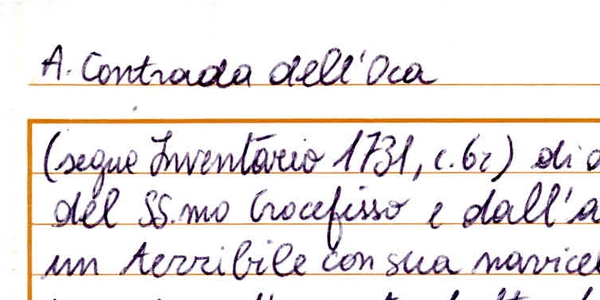 A. Contrada dell'Oca
(segue Inventario 1731, c. 6r) di
del SS.mo Crocefisso e dall'a
un terribile con sua navicel